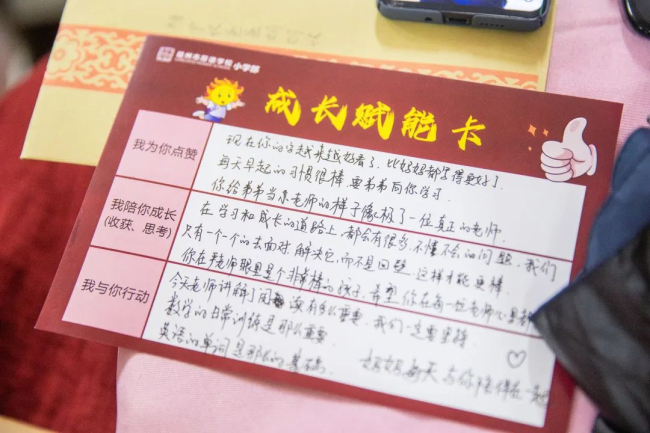 小学部
成长赋能卡
我为你点赞
现在你的字越来越好看了，比妈妈都写得更好了。
每天早起的习惯很棒，要弟弟向你学习。
你给弟弟当小老师的样子像极了一位真正的老师。
我陪你成长
(收获、思考)
在学习和成长的道路上，都会有很多不懂不会的问题，我们
只有一个一个的去面对，解决它，而不是回避，这样才能更棒。
你在老师眼里是个非常棒的孩子，希望你在每一位老师心里都
我与你行动
今天老师讲解了阅读有多么重要，我们一定要坚持
数学的日常训练是那么重要
英语的单词是那么的基础。
妈妈每天与你陪伴在一起